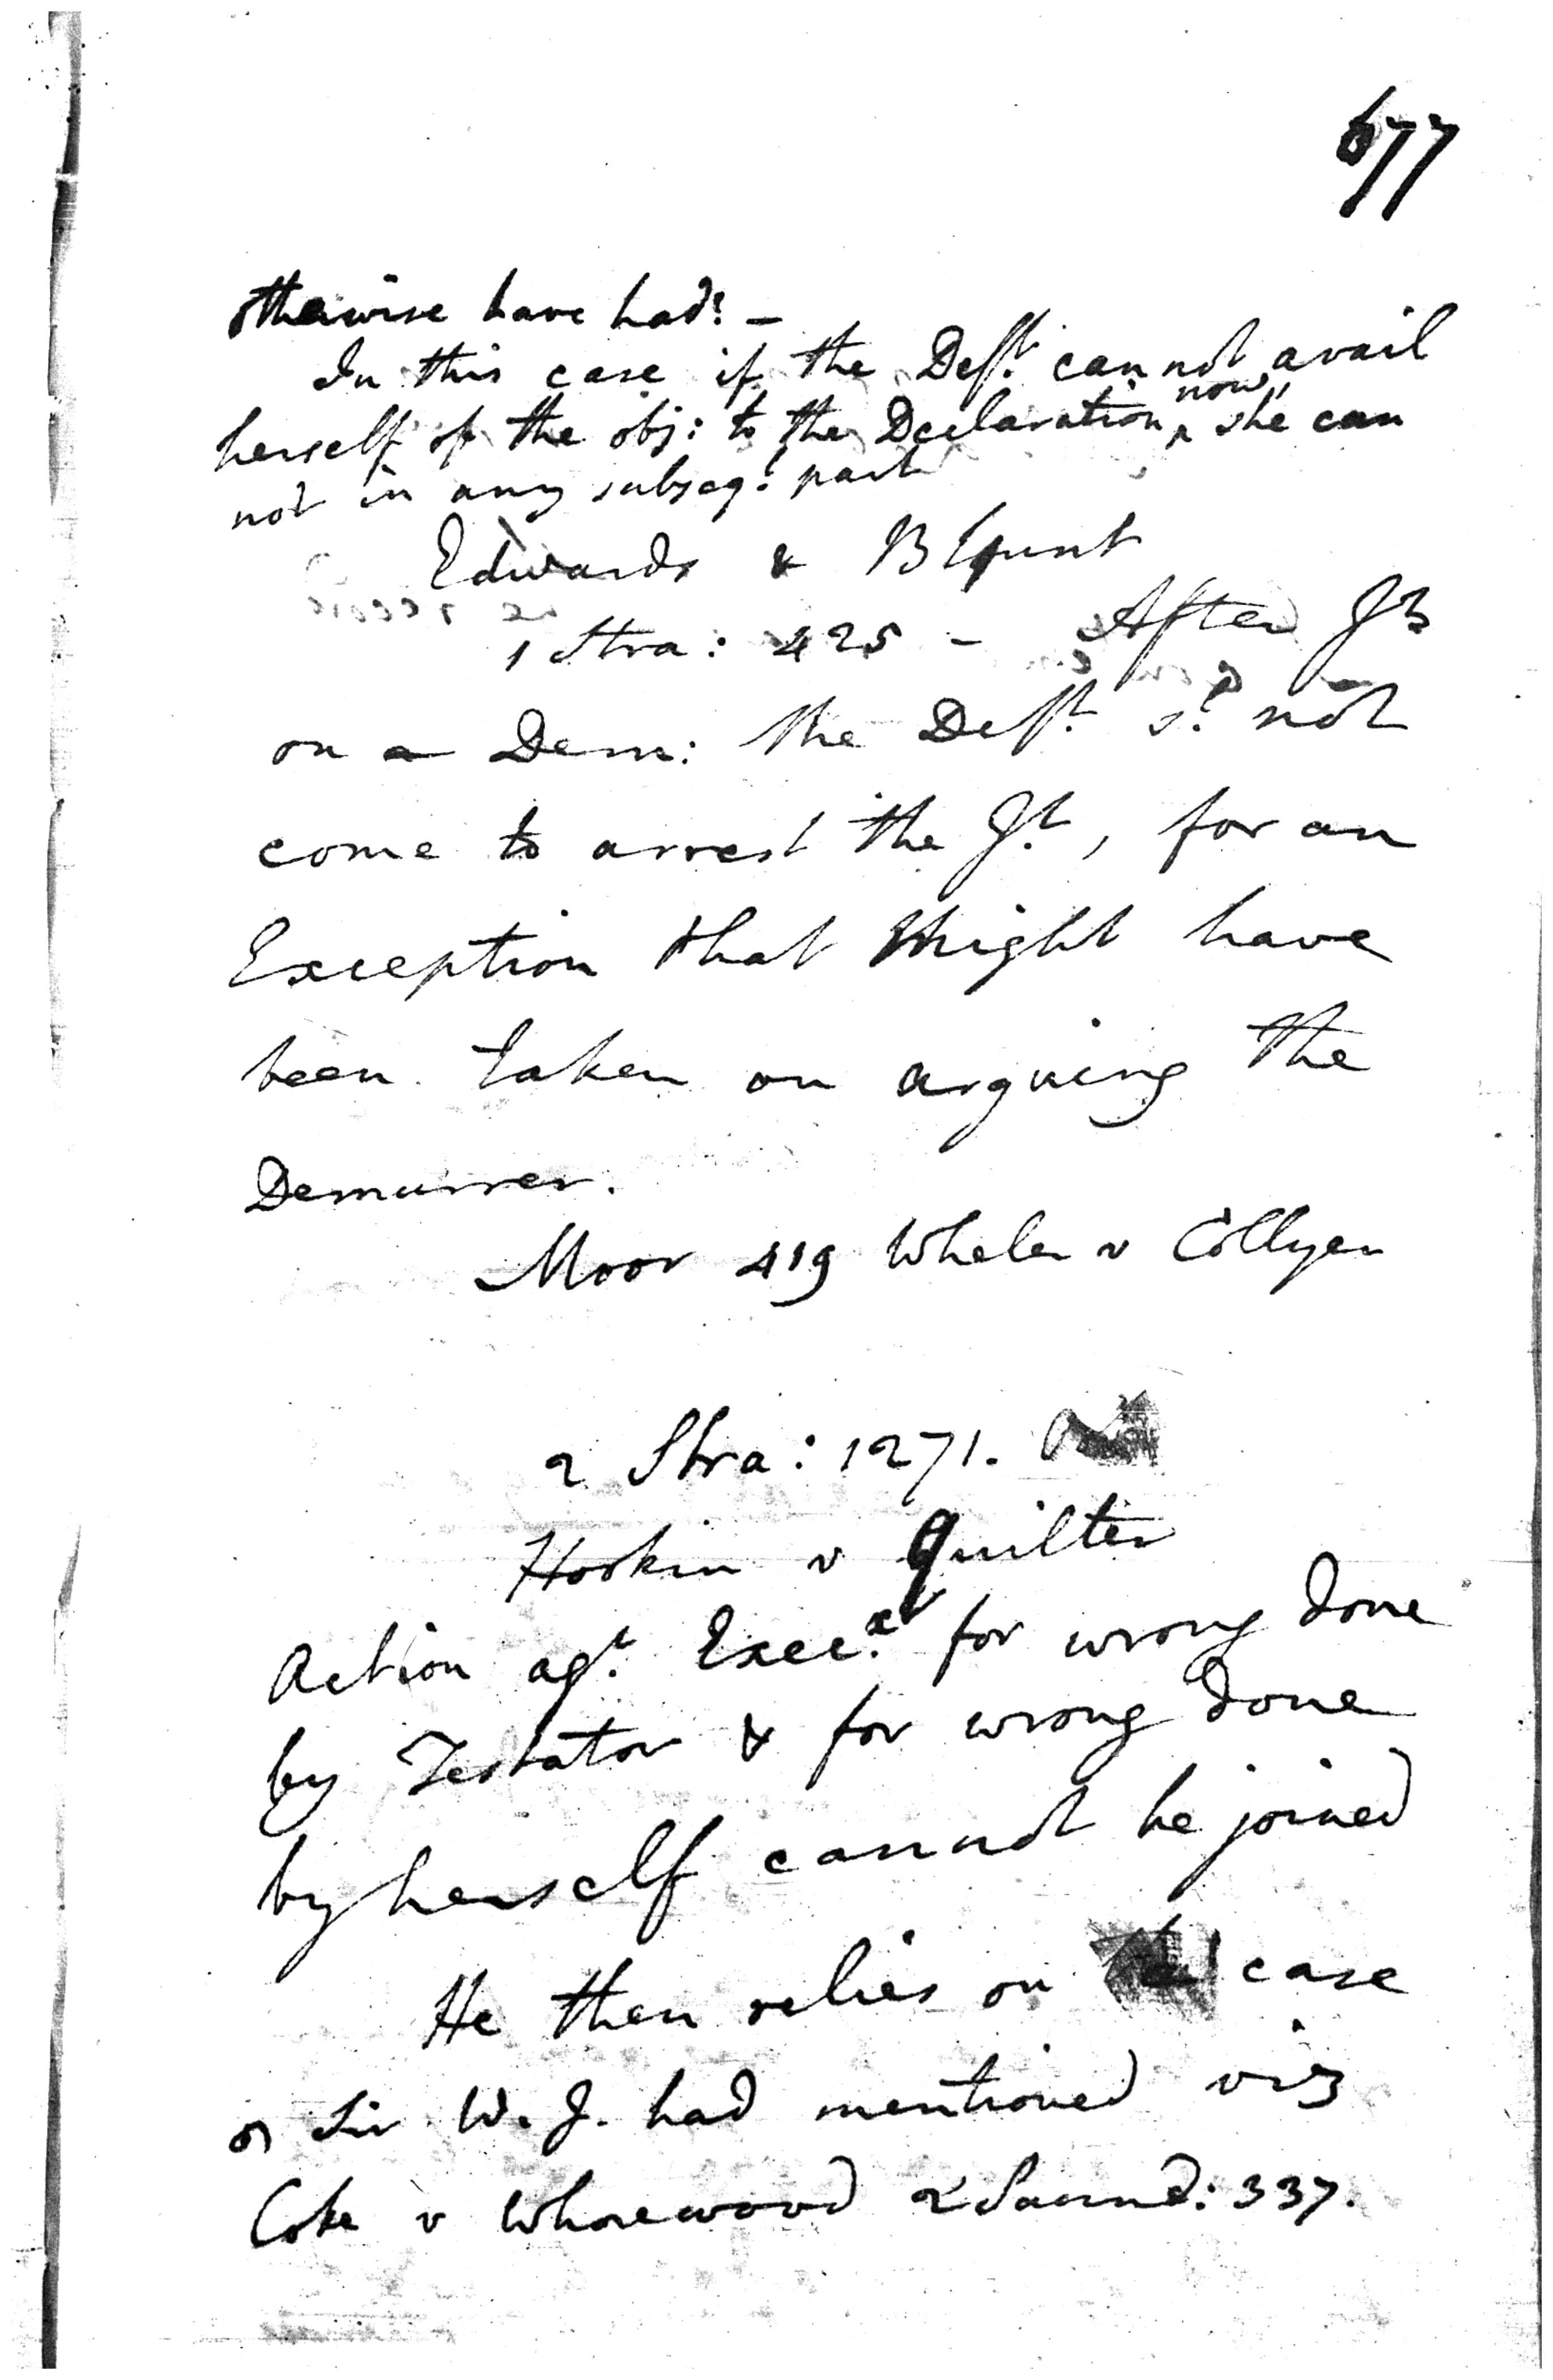 677
otherwise have had? –
In this case if the Deft. cannot avail
now,
herself of the obj: to the Declaration ^ she can
not in any subseq.t part
Edwards & Blount
1 Stra: 425 – After Jt
on a Dem: the Deft. s.d not
come to arrest the Jt., for an
Exception that might have
been taken on arguing the
Demurrer.
Moor 419 Wheler v Collyer
2 Stra: 1271.
Hookin v Quilter
Action agt. Execx. for wrong done
by Testator & for wrong done
by herself cannot be joined
He then relies on case
Sir W. J. had mentioned viz
Coke v Whorewood 2 Saund: 337.